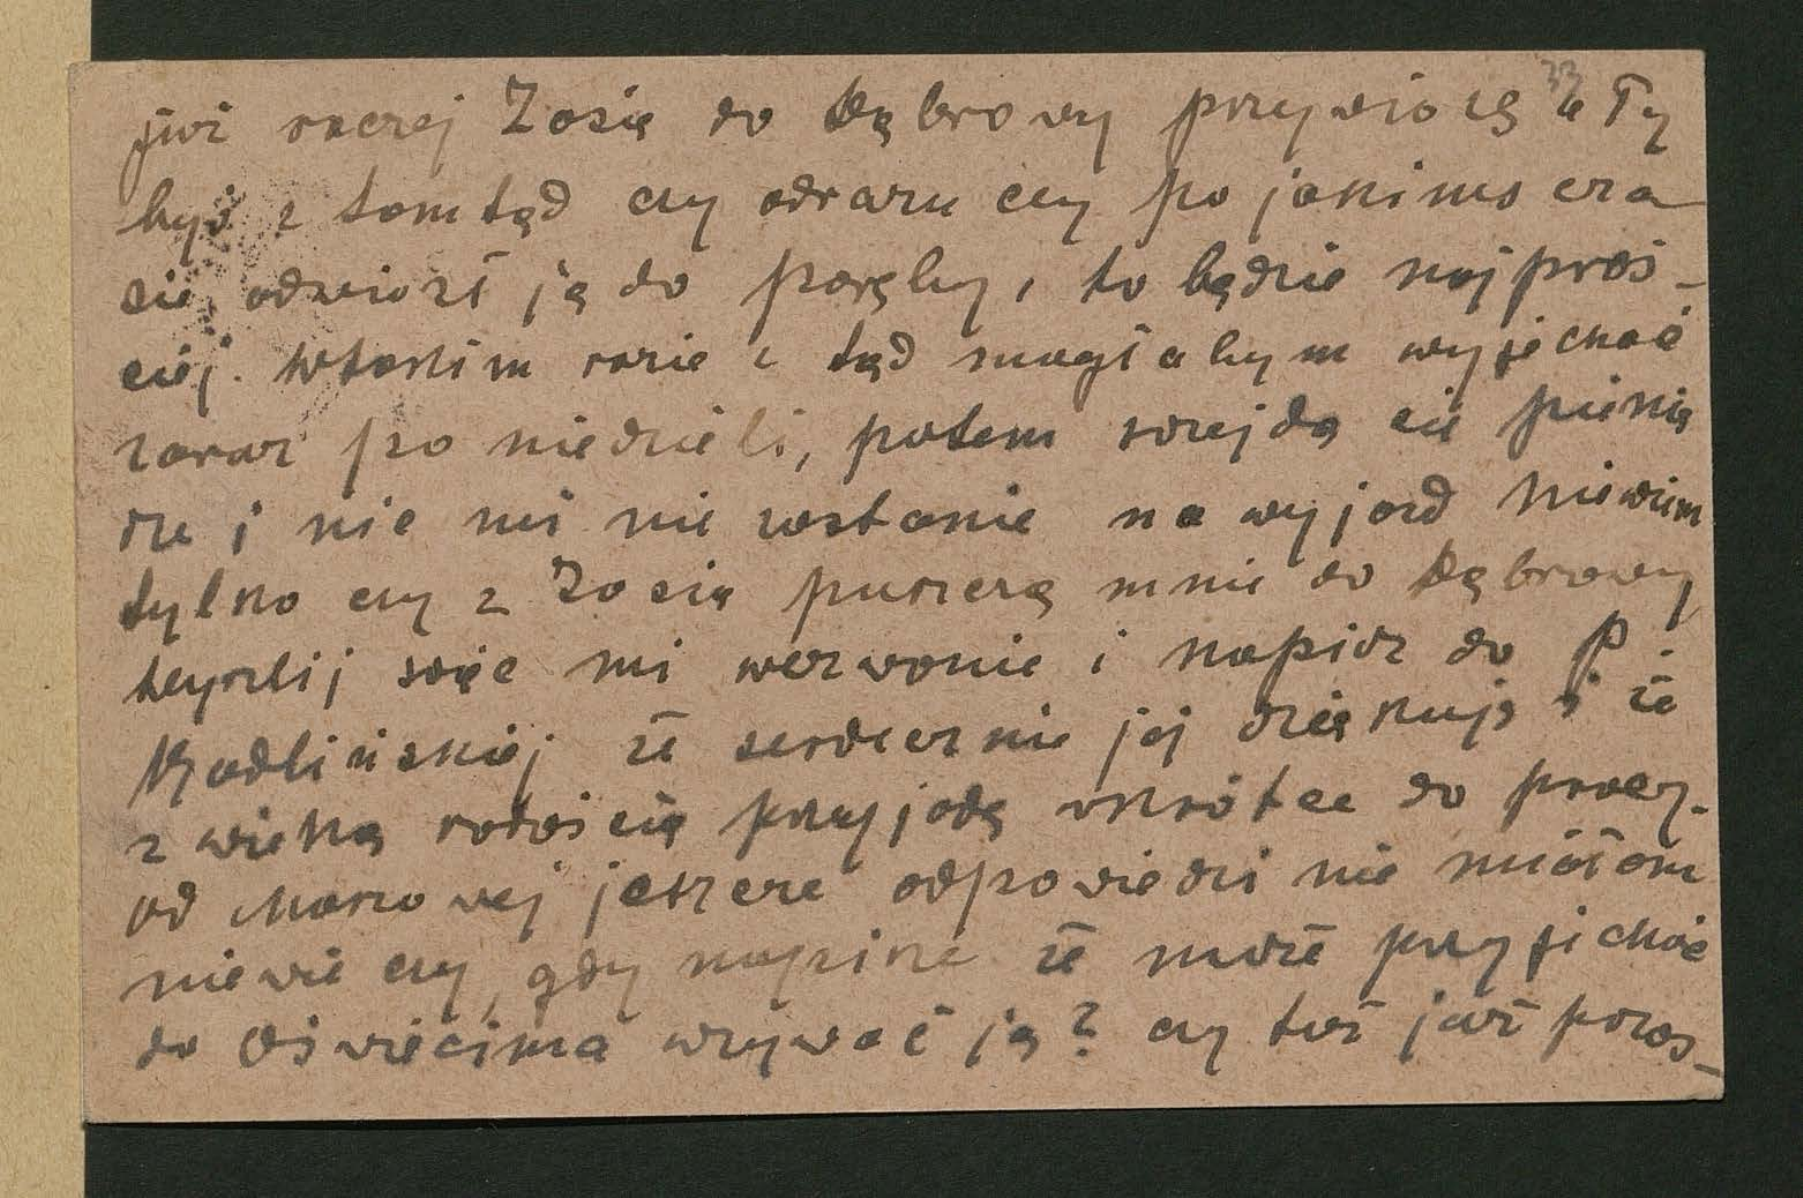 33
już raczej Zosię do Dąbrowy przywiozę a Ty
byś z tamtąd czy odrazu czy po jakimś cza
sie, odwiozł ją do Poręby, to będzie najproś-
ciej. Wtakim razie i tąd mogłabym wyjechać
zaraz po niedzieli, potem rozejdą się pienię
dze i nic mi nie zostanie na wyjazd niewiem
tylko czy z Zosią puszczą mnie do Dąbrowy
wyślij więc mi wezwanie i napisz do P.
Kadlińskiej że serdecznie jej dziękuję i że
z wielką radością przyjadę wkrótce do pracy.
od jeszcze odpowiedzi nie miałam
niewie czy, gdy napisze że może przyjechać
do Oświęcima wzywać ją? czy też już poros-